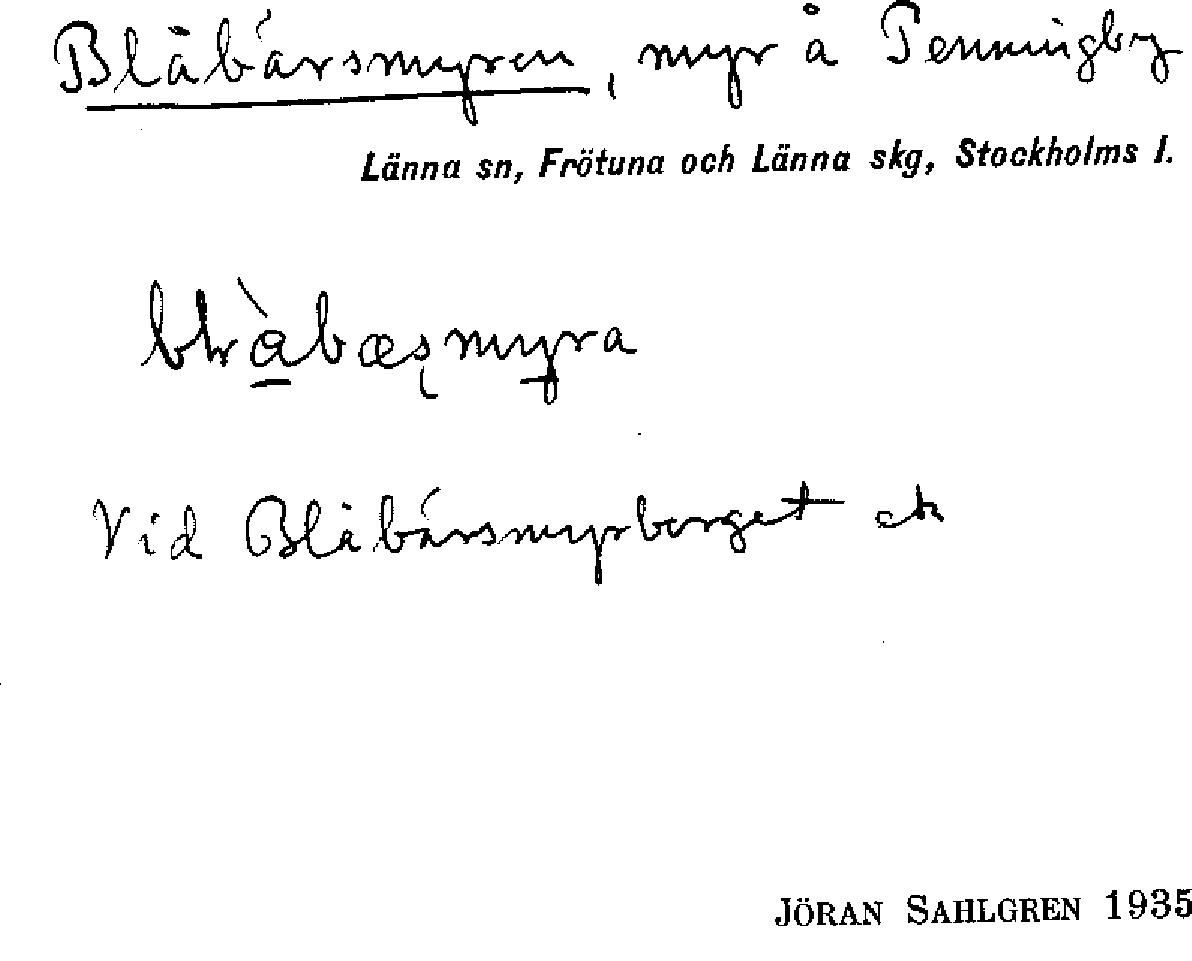 Blåbärsmyren, myr å Penningby
Länna sn, Frötuna och Länna skg, Stockholms l.
Vid Blåbärsmyrberget
JÖRAN SAHLGREN 1935